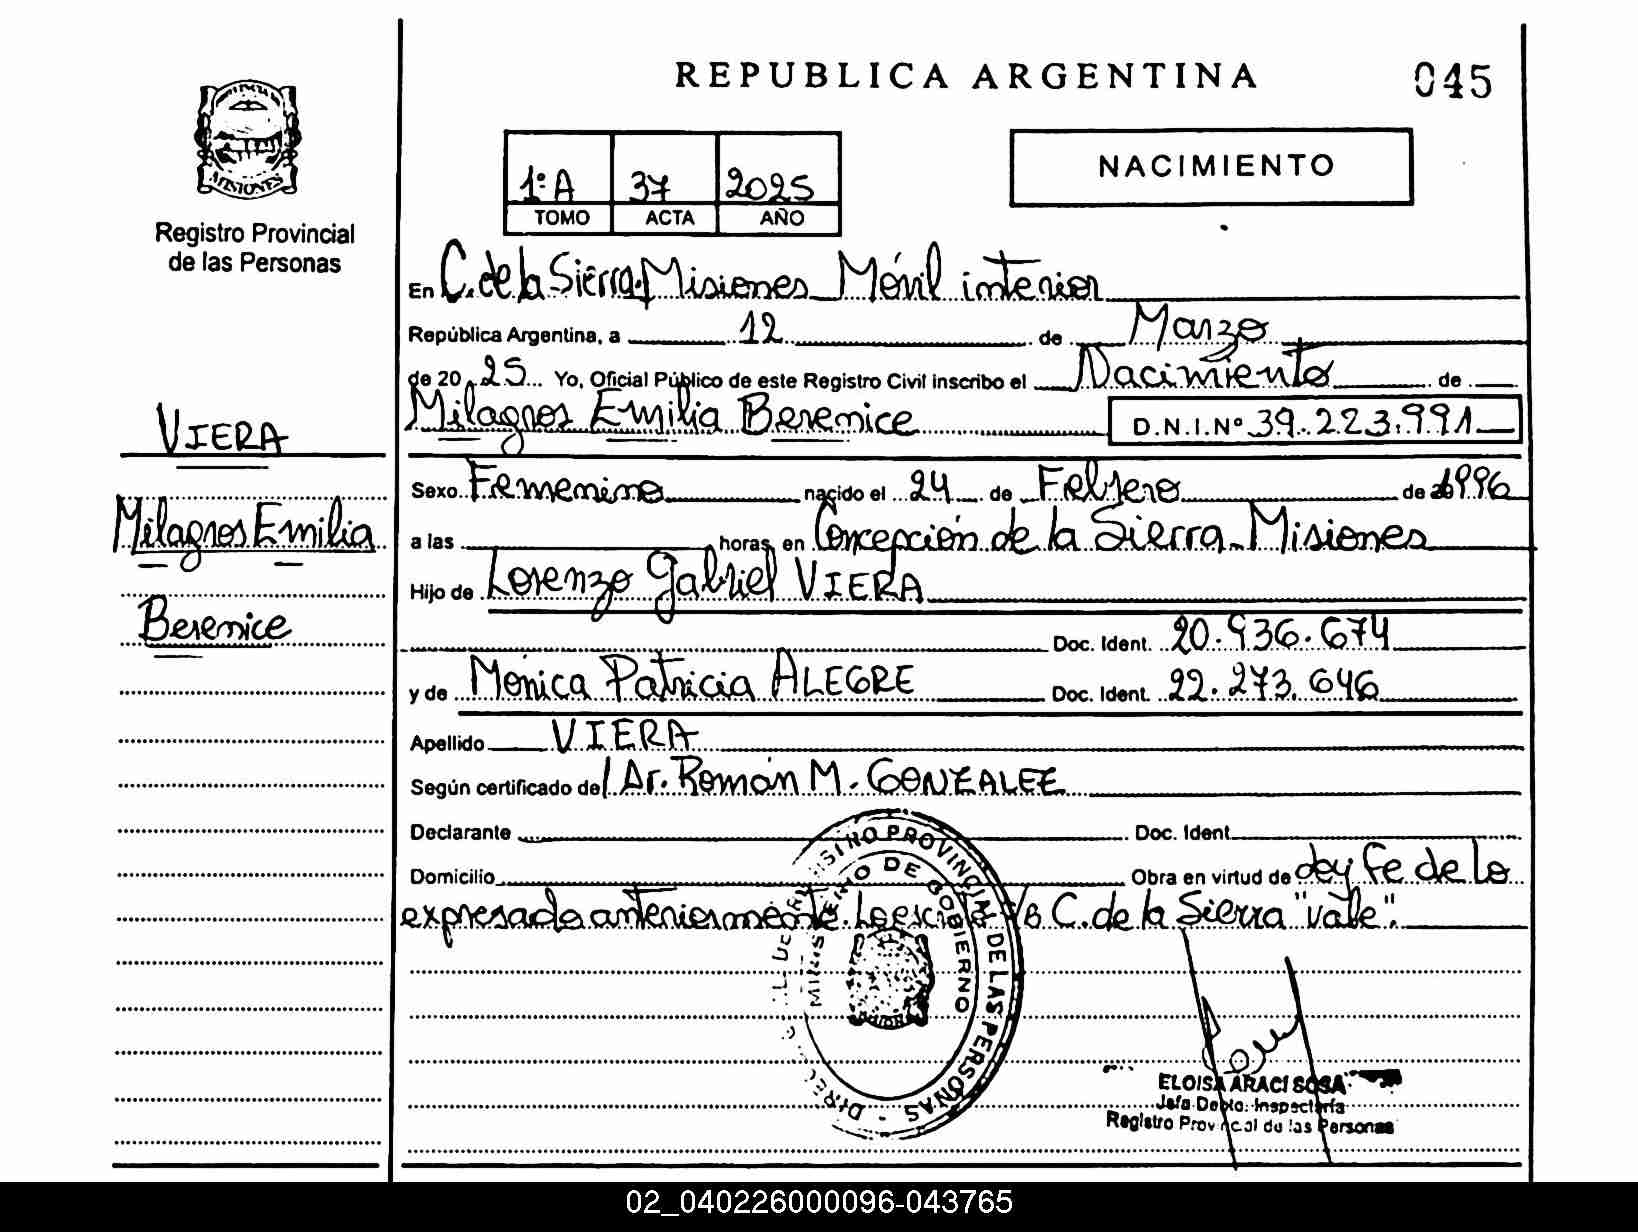 REPUBLICA ARGENTINA
045
MISIONES
Registro Provincial
de las Personas
1ºA 37 2025
TOMO ACTA AÑO
NACIMIENTO
En C. de la Sierra-Misiones Móvil interior
República Argentina, a 12 de Marzo
de 20 25 Yo, Oficial Público de este Registro Civil inscribo el Nacimiento de
Milagros Emilia Berenice D.N.I.Nº 39.223.991
Sexo Femenino nacido el 24 de Febrero de 1996
a las horas, en Concepción de la Sierra-Misiones
Hijo de Lorenzo Gabriel VIERA
Doc. Ident. 20.936.674
y de Mónica Patricia ALEGRE Doc. Ident. 22.273.646
Apellido VIERA
Según certificado de Dr. Román M. GONZALEZ
Declarante Doc. Ident.
Domicilio Obra en virtud de doy fe de lo
expresado anteriormente. Lo C. de la Sierra "vale".
VIERA
Milagros Emilia
Berenice
REGISTRO PROVINCIAL DE LAS PERSONAS
MINISTERIO DE GOBIERNO
ELOISA ARACI SOSA
Jefa Depto. Inspectoría
Registro Provincial de las Personas
02_040226000096-043765